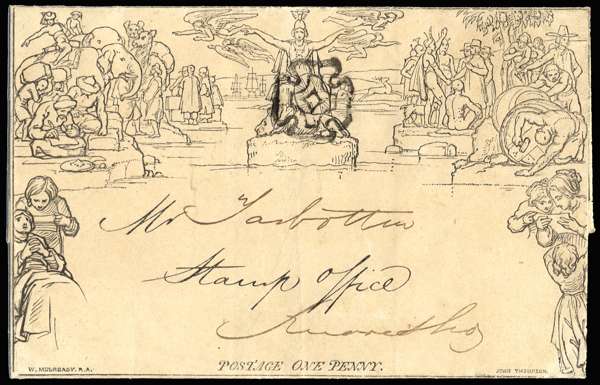 Mr Tarbotten
Stamp Office
POSTAGE ONE PENNY.
W. MULREADY. R.A.
JOHN THOMPSON.